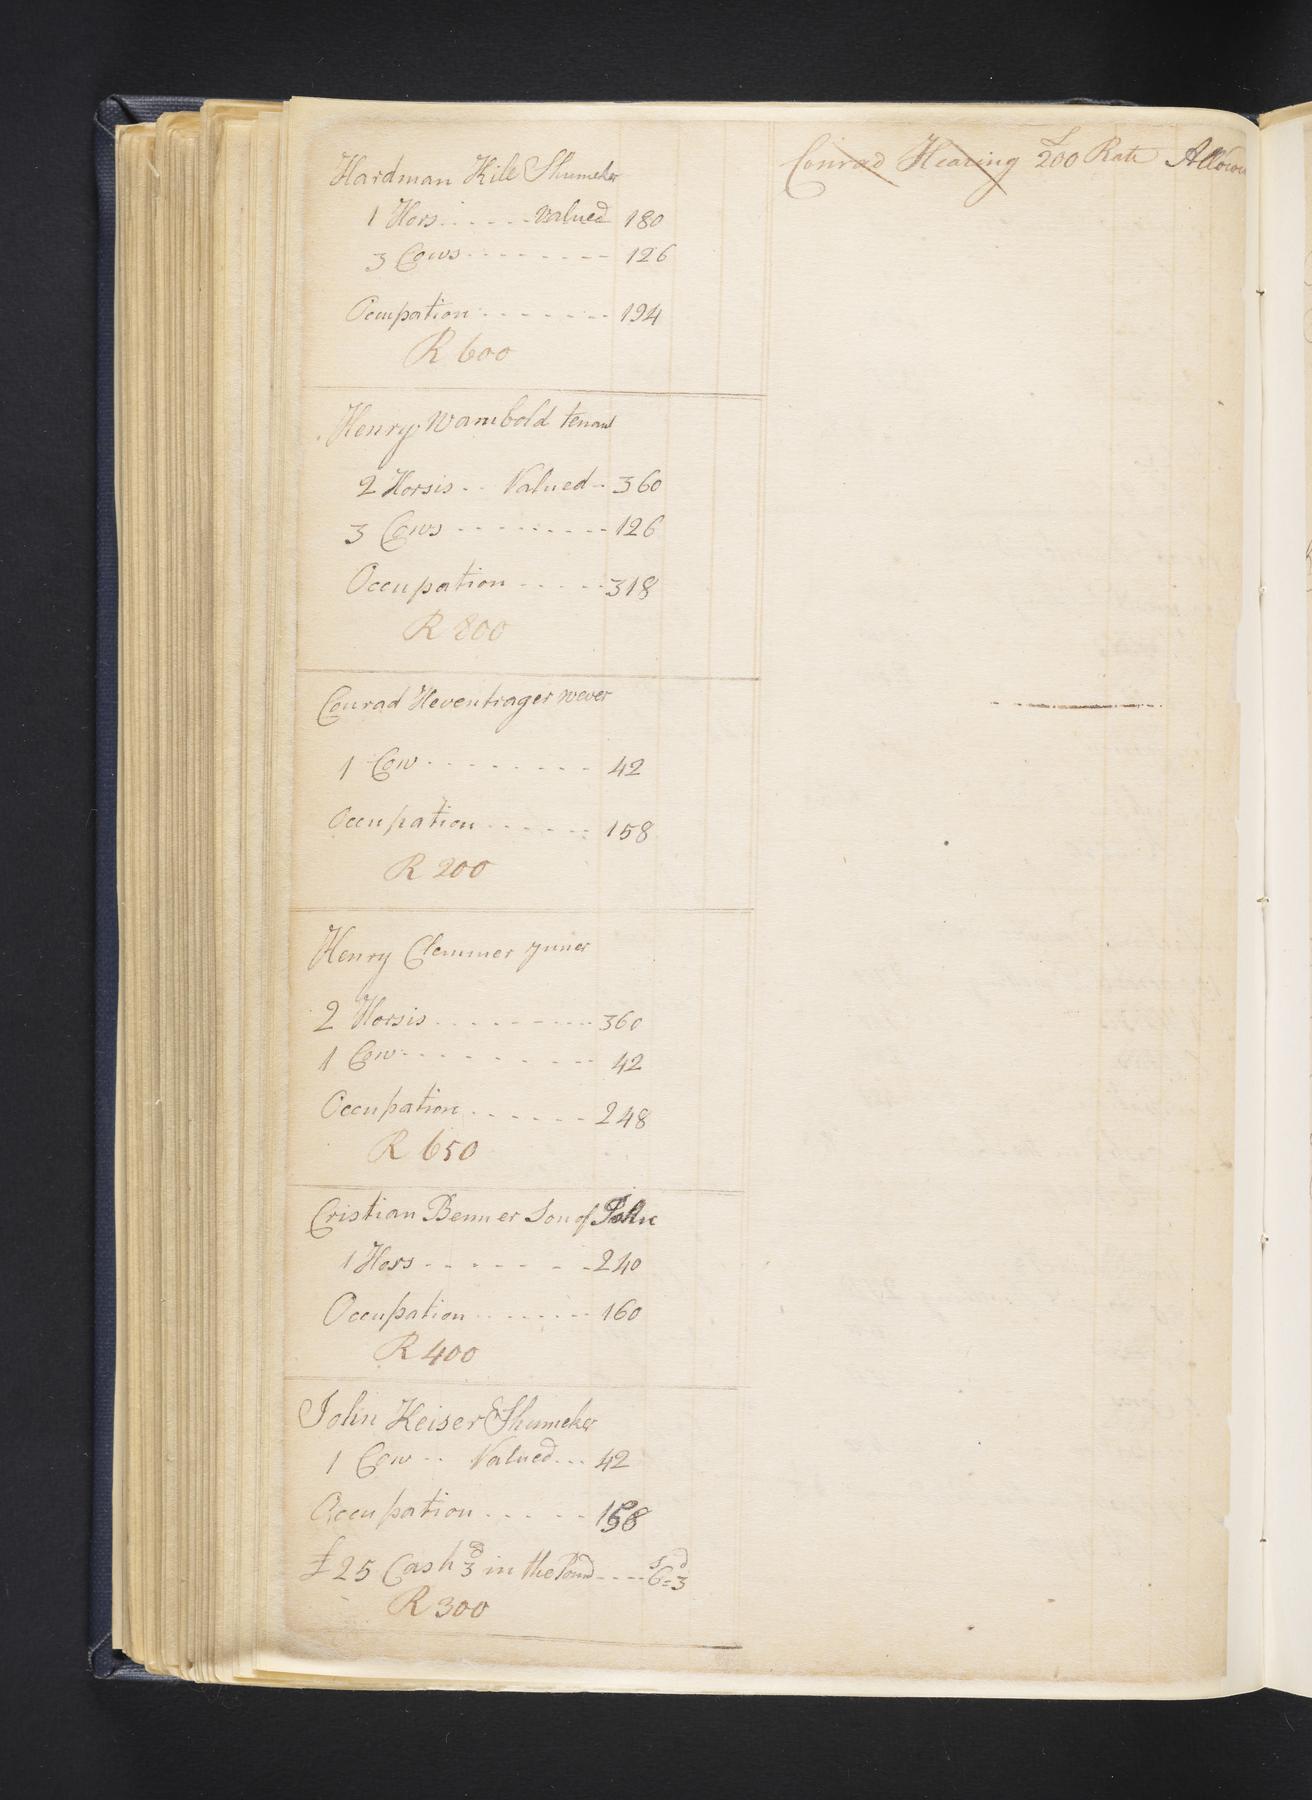 Hardman Kile Shumeker
1 Hors ...... valued 180
3 Cows -------- 126
Ocupation ------- 194
R 600
Henry Wambold tenant
2 Horsis -- Valued - 360
3 Cows --------- 126
Occupation ----- 318
R 800
Conrad Heventrager wever
1 Cow --------- 42
Occupation ------ 158
R 200
Henry Clemmer Juner
2 Horsis --------- 360
1 Cow --------- 42
Occupation ------ 248
R 650
Cristian Benner Son of John
1 Hors ------- 240
Occupation ------- 160
R 400
John Keiser Shumeker
1 Cow -- Valued --- 42
Occupation ----- 158
£25 Cash 3d in the Pound ---- 6s=3d
R 300
Conrad Hearing £200 Rate